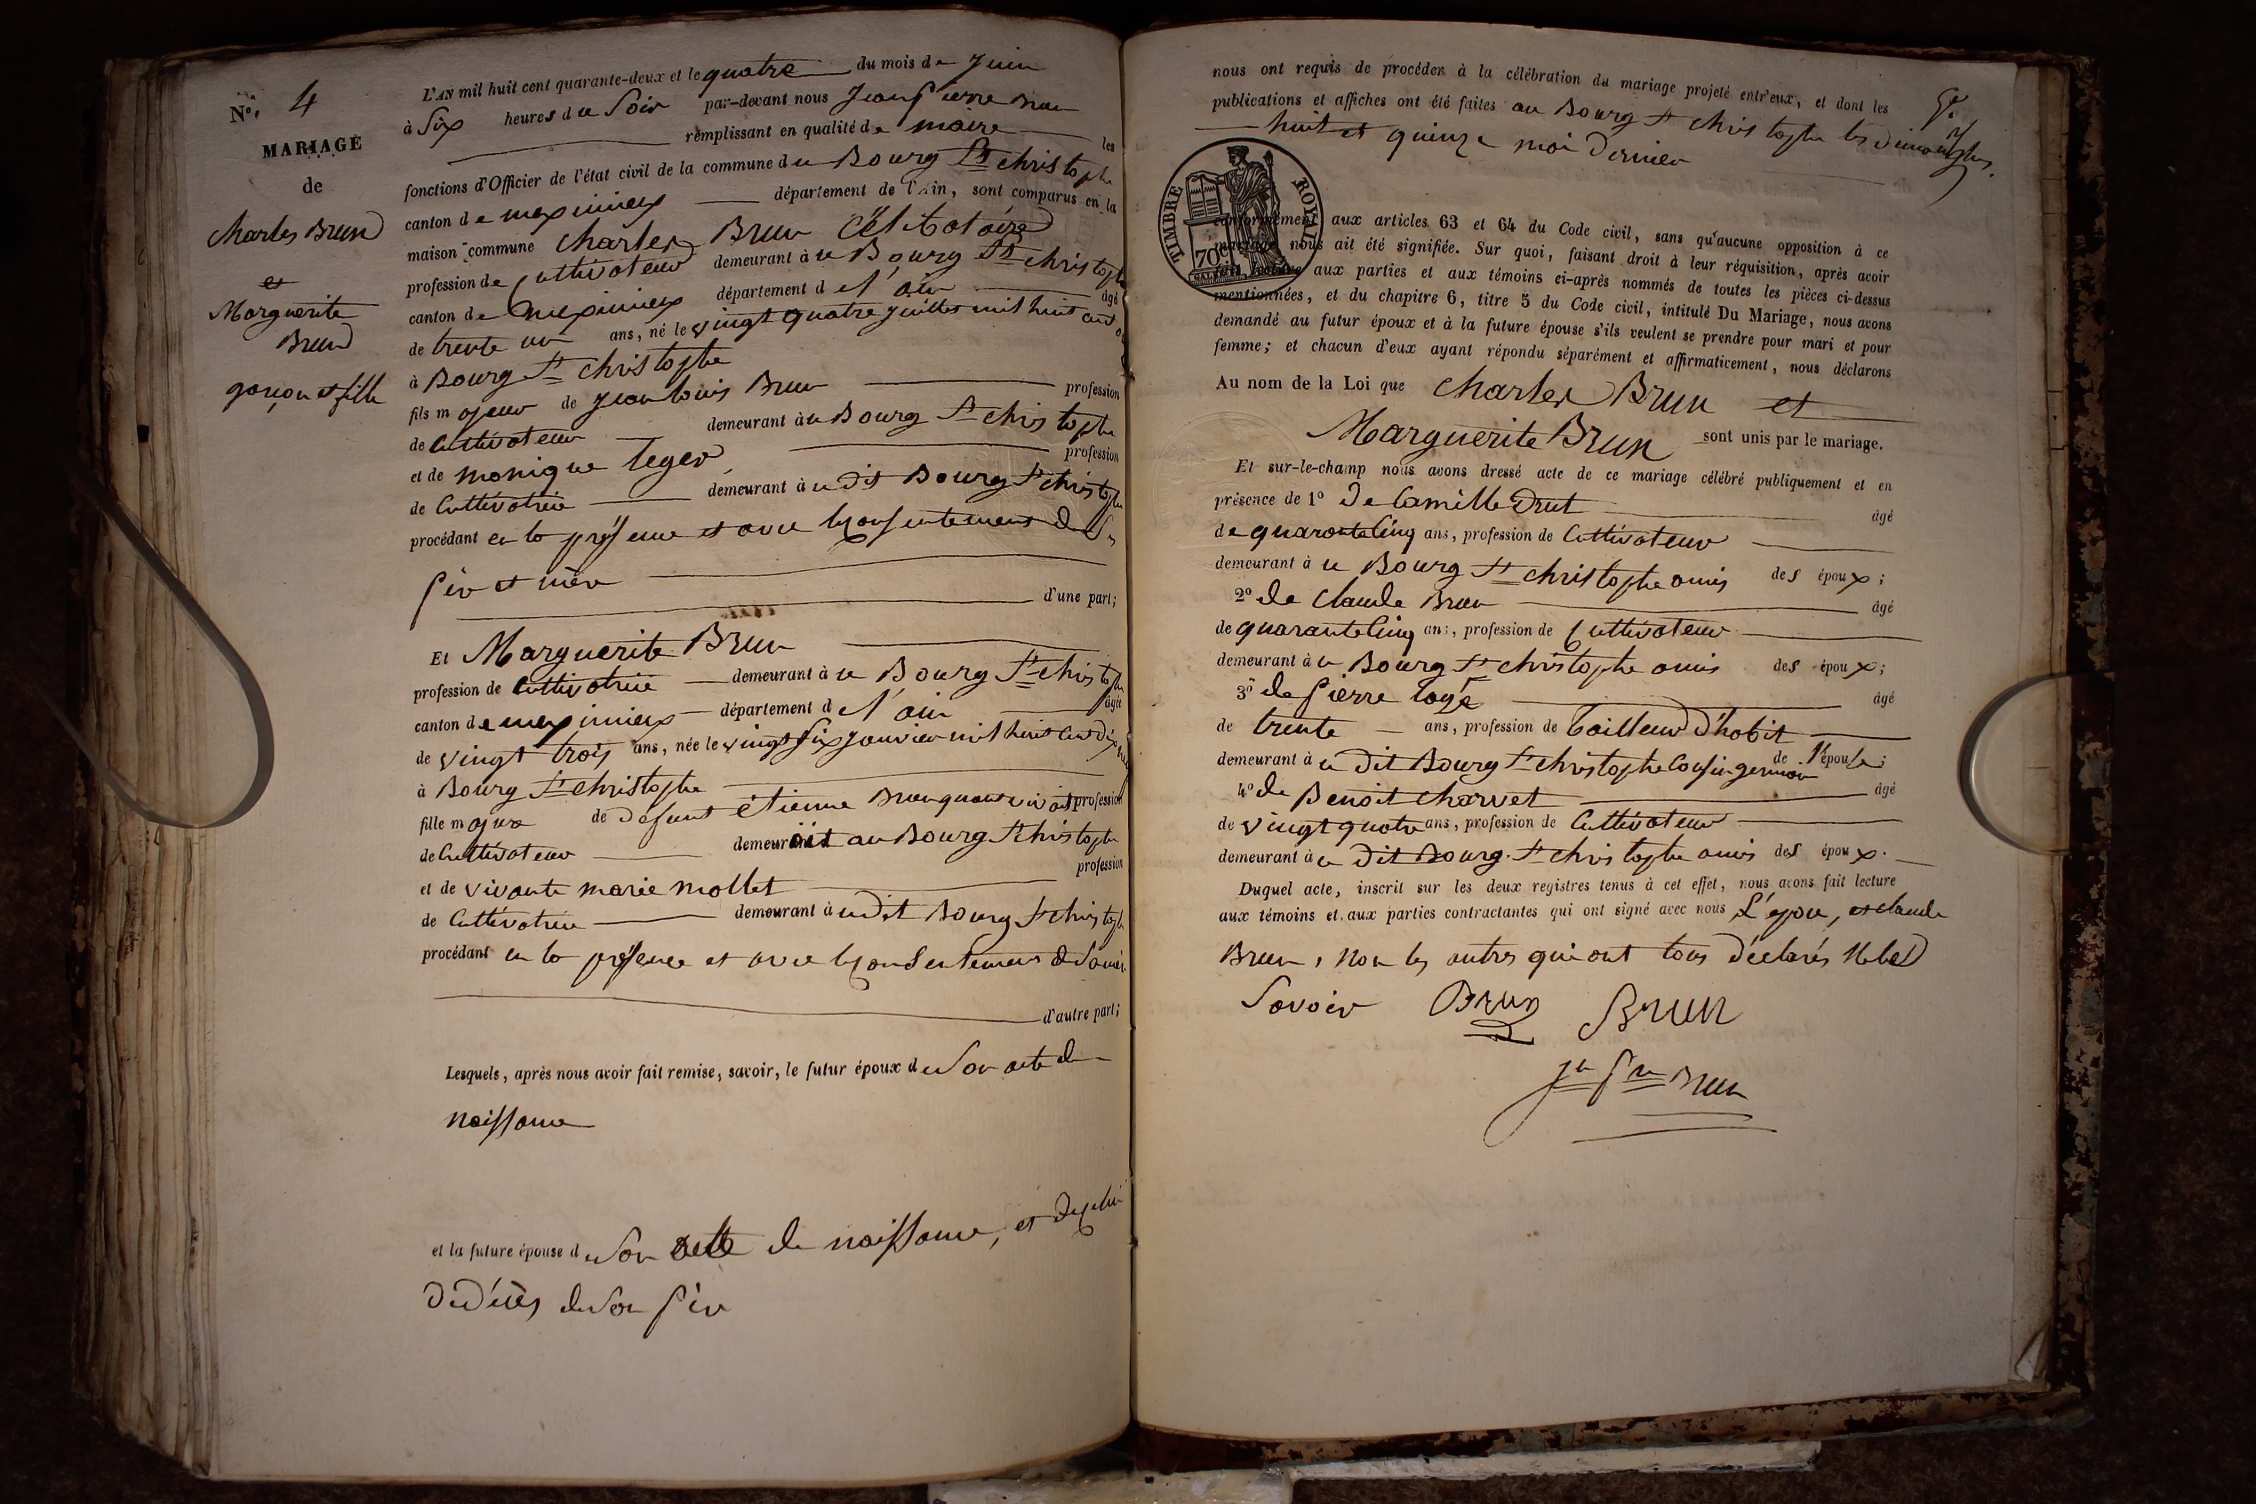 N.º 4
MARIAGE
de
Charles Brun
et
Marguerite
Brun
garçon et fille
L'AN mil huit cent quarante-deux et le quatre du mois de Juin
à Six heures du Soir par-devant nous Jean Pierre Brun
remplissant en qualité de maire les
fonctions d'Officier de l'état civil de la commune du Bourg St christophe
canton de meximieux département de l'Ain, sont comparus en la
maison commune Charles Brun Célibataire
profession de Cultivateur demeurant à u Bourg St christophe
canton de meximieux département de l'ain âgé
de trente un ans, né le vingt quatre juillet mil huit cent
à Bourg St christophe
fils majeur de Jean louis Brun profession
de Cultivateur demeurant à u Bourg St christophe
et de monique leger profession
de Cultivatrice demeurant à u dit Bourg St christophe
procédant en la présence et avec le consentement de Ses
père et mère
d'une part;
Et Marguerite Brun
profession de Cultivatrice demeurant à u Bourg St christophe
canton de meximieux département de l'ain âgée
de vingt trois ans, née le vingt six janvier mil huit cent dix
à Bourg St christophe
fille majeure de défunt étienne Brun quand vivait profession
de Cultivateur demeurait au Bourg St christophe
et de vivante marie mollet profession
de Cultivatrice demeurant à u dit Bourg St christophe
procédant en la présence et avec le consentement de Sa mère
d'autre part;
Lesquels, après nous avoir fait remise, savoir, le futur époux de Son acte de
naissance
et la future épouse de Son acte de naissance, et de celui
de décès de Son père
nous ont requis de procéder à la célébration du mariage projeté entr'eux, et dont les
publications et affiches ont été faites au Bourg St christophe les dimanches
huit et quinze mai dernier
TIMBRE ROYAL
70c
conformément aux articles 63 et 64 du Code civil, sans qu'aucune opposition à ce
mariage nous ait été signifiée. Sur quoi, faisant droit à leur réquisition, après avoir
fait lecture aux parties et aux témoins ci-après nommés de toutes les pièces ci-dessus
mentionnées, et du chapitre 6, titre 5 du Code civil, intitulé Du Mariage, nous avons
demandé au futur époux et à la future épouse s'ils veulent se prendre pour mari et pour
femme; et chacun d'eux ayant répondu séparément et affirmativement, nous déclarons
Au nom de la Loi que Charles Brun et
Marguerite Brun sont unis par le mariage.
Et sur-le-champ nous avons dressé acte de ce mariage célébré publiquement et en
présence de 1º De Camille Drut âgé
de quarante Cinq ans, profession de Cultivateur
demeurant à u Bourg St christophe amis des époux;
2º de Claude Brun âgé
de quarante Cinq ans, profession de Cultivateur
demeurant à u Bourg St christophe amis des époux;
3º de Pierre logé âgé
de trente ans, profession de tailleur d'habit
demeurant à u dit Bourg St christophe Cousin germain de l'épouse;
4º de Benoit Charvet âgé
de vingt quatre ans, profession de Cultivateur
demeurant à u dit Bourg St christophe amis des époux.
Duquel acte, inscrit sur les deux registres tenus à cet effet, nous avons fait lecture
aux témoins et aux parties contractantes qui ont signé avec nous L'époux, et claude
Brun, Non les autres qui ont tous déclarés Ne le
Savoir Brun Brun
Jn Pre Brun